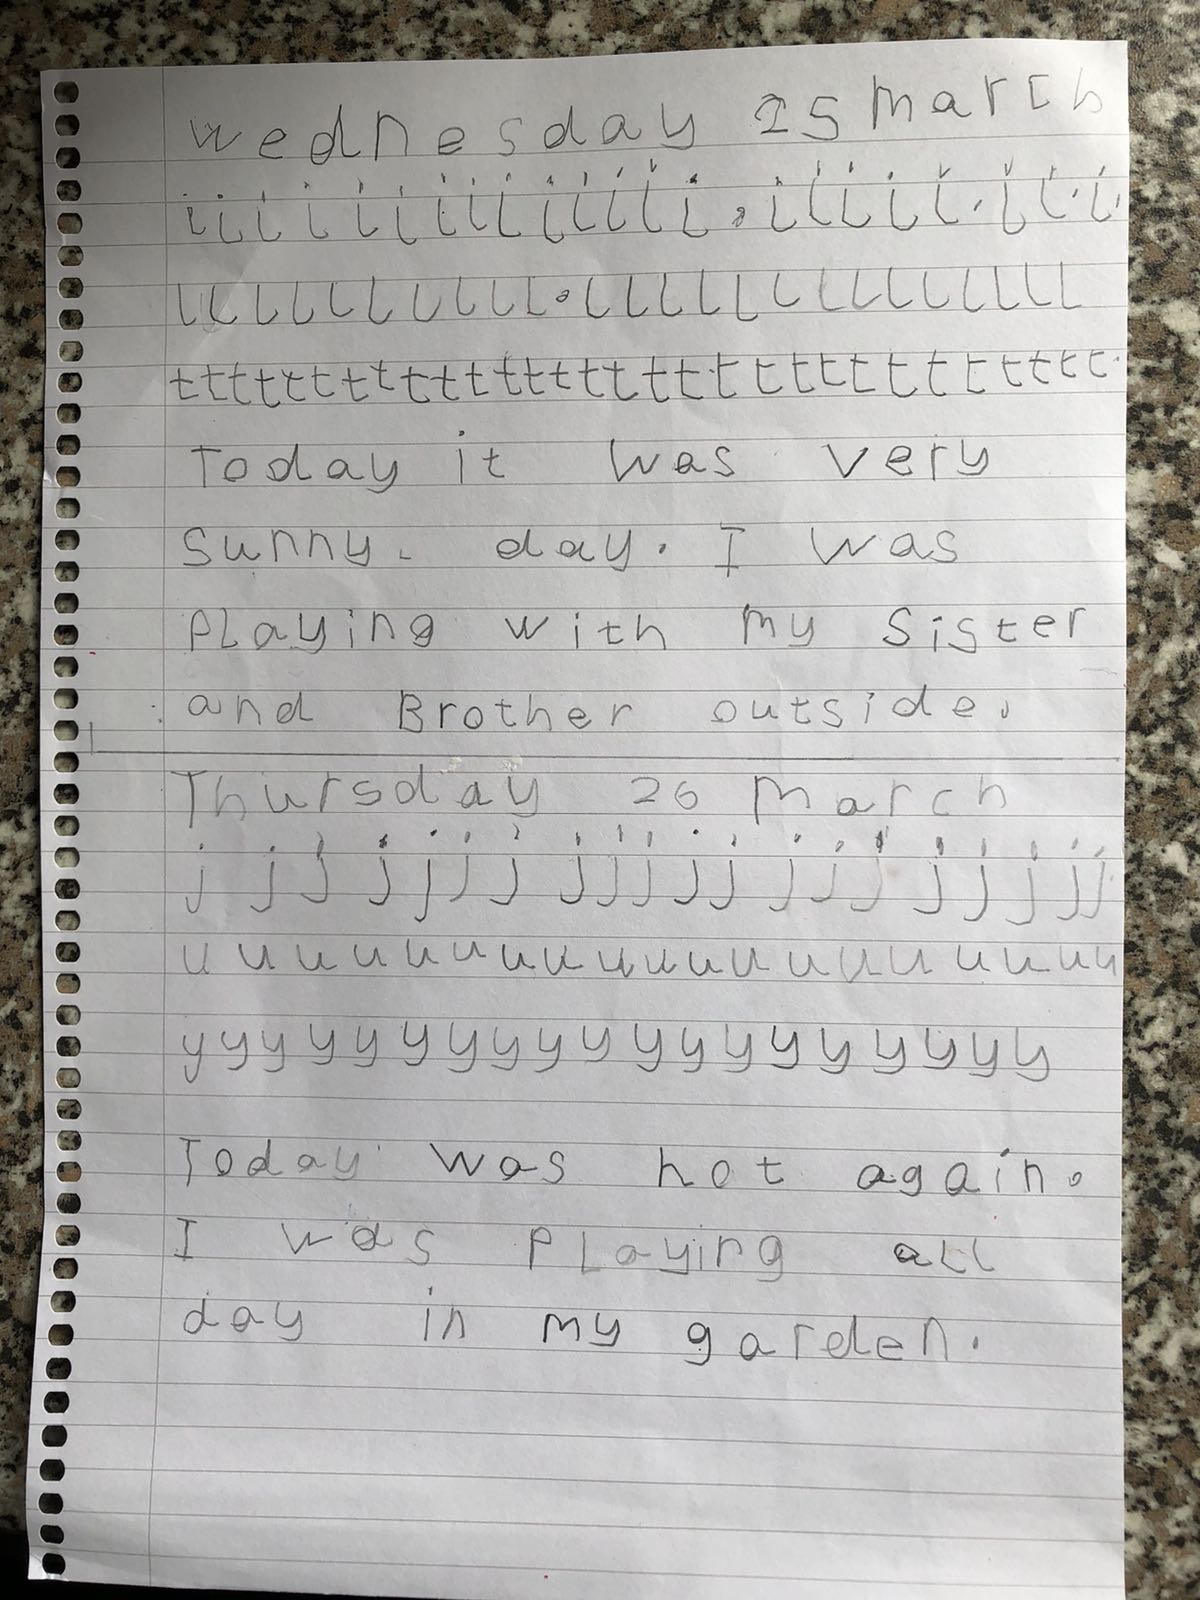 wednesday 25 march
iiiiiiiiiiiiiii,iiiii.iiii
lllllllllll.llllllllllllll
ttttttttttttttttttttttttttttt
Today it was very
sunny. day. I was
Playing with my sister
and Brother outside.
Thursday 26 march
jjjjjjjjjjjjjjjjjjjjj
uuuuuuuuuuuuuuuuuuu
yyyyyyyyyyyyyyyyyyy
Today was hot again.
I was Playing all
day in my garden.